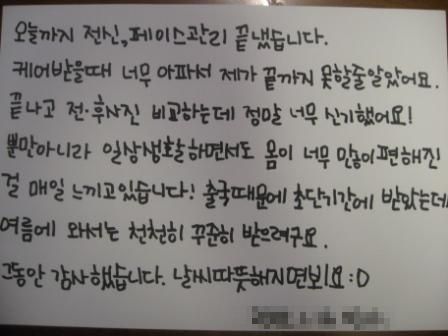 오늘까지 전신,페이스관리 끝냈습니다.
케어받을때 너무 아파서 제가 끝까지 못할줄알았어요.
끝나고 전·후사진 비교하는데 정말 너무 신기했어요!
뿐만아니라 일상생활하면서도 몸이 너무 많이편해진
걸 매일 느끼고있습니다! 출국때문에 초단기간에 받았는데
여름에 와서는 천천히 꾸준히 받으려구요.
그동안 감사했습니다. 날씨따뜻해지면봬요:D